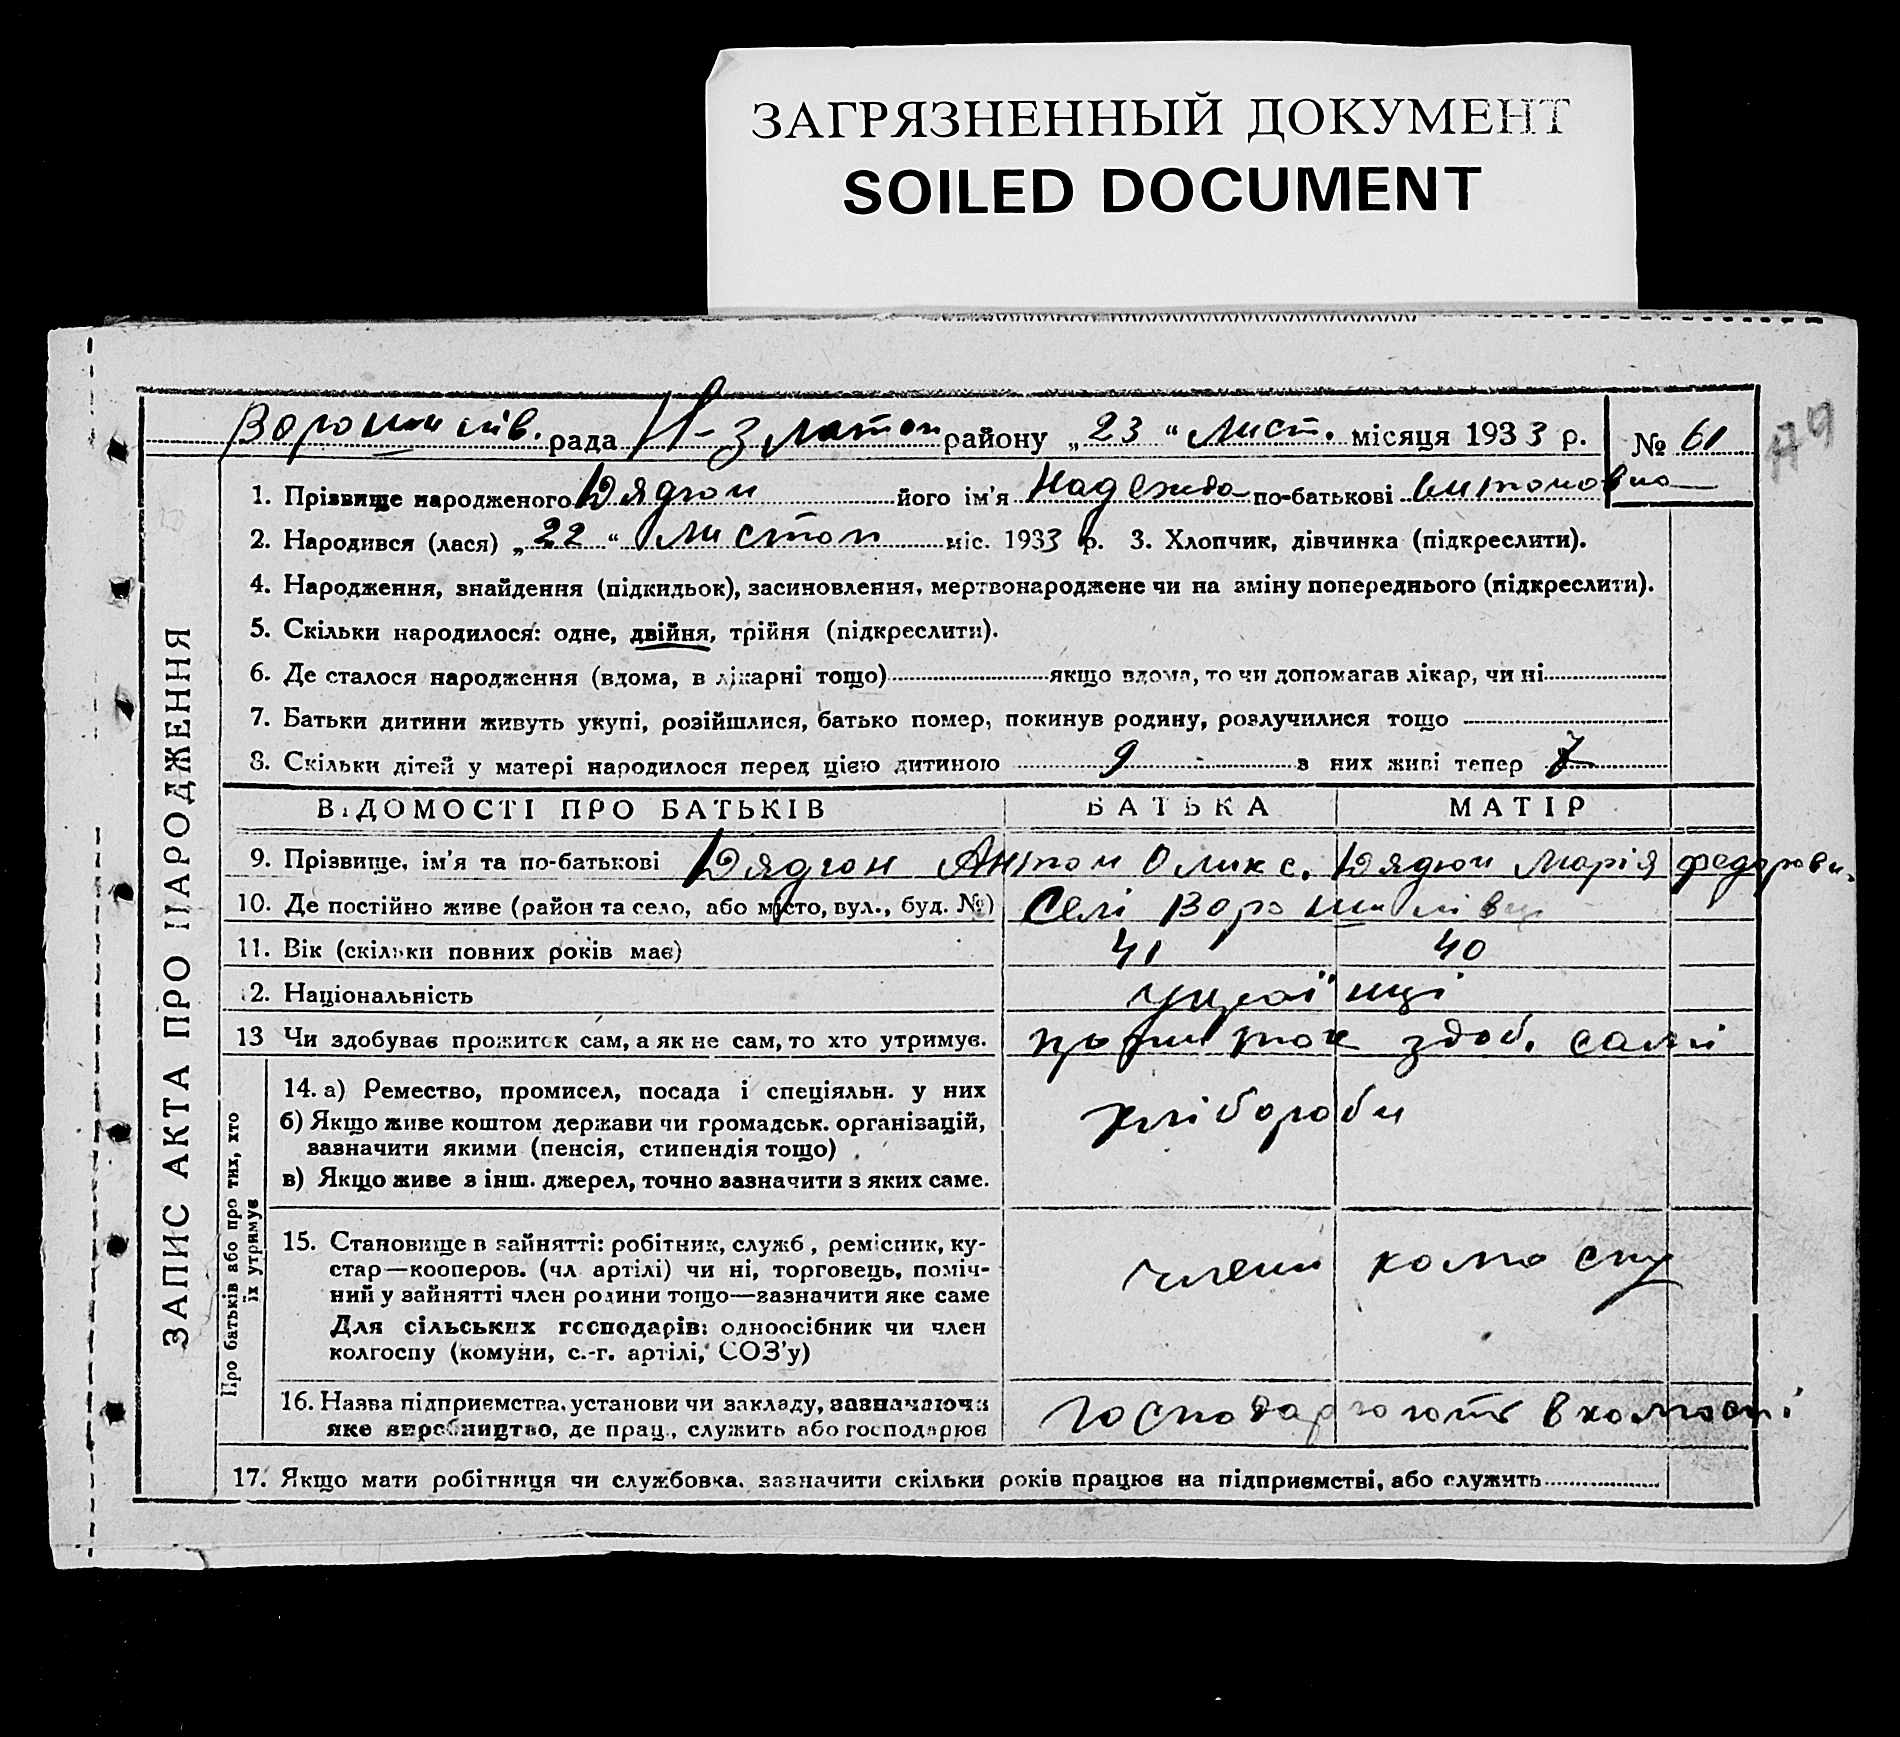 ЗАГРЯЗНЕННЫЙ ДОКУМЕНТ
SOILED DOCUMENT
Ворошилів. рада Н-Златоп району „23“ Лист. місяця 1933 р. № 61
1. Прізвище народженого Дядюн його ім'я Надежда по-батькові Антоновна
2. Народився (лася) „22“ листоп міс. 1933 р. 3. Хлопчик, дівчинка (підкреслити).
4. Народження, знайдення (підкидьок), засиновлення, мертвонароджене чи на зміну попереднього (підкреслити).
5. Скільки народилося: одне, двійня, трійня (підкреслити).
6. Де сталося народження (вдома, в лікарні тощо) якщо вдома, то чи допомагав лікар, чи ні
7. Батьки дитини живуть укупі, розійшлися, батько помер, покинув родину, розлучилися тощо
8. Скільки дітей у матері народилося перед цією дитиною 9 з них живі тепер 7
ВІДОМОСТІ ПРО БАТЬКІВ БАТЬКА МАТІР
9. Прізвище, ім'я та по-батькові Дядюн Антон Оликс. Дядюн Марія Федорови.
10. Де постійно живе (район та село, або місто, вул., буд. №) Селі Ворошилівці
11. Вік (скільки повних років має) 41 40
12. Національність українці
13 Чи здобував прожиток сам, а як не сам, то хто утримує. здоб. самі
14. а) Ремество, промисел, посада і спеціяльн. у них хлібороби
б) Якщо живе коштом держави чи громадськ. організацій,
зазначити якими (пенсія, стипендія тощо)
в) Якщо живе з інш. джерел, точно зазначити з яких саме.
15. Становище в зайнятті: робітник, служб, ремісник, ку-
стар—кооперов. (чл артілі) чи ні, торговець, поміч- члени колгоспу
ний у зайнятті член родини тощо—зазначити яке саме
Для сільських господарів: одноосібник чи член
колгоспу (комуни, с.-г. артілі, СОЗ'у)
16. Назва підприємства, установи чи закладу, зазначаючи господарюють в колгоспі
яке виробництво, де прац., служить або господарює
17. Якщо мати робітниця чи службовка, зазначити скільки років працює на підприємстві, або служить
ЗАПИС АКТА ПРО НАРОДЖЕННЯ
Про батьків або про тих, хто
їх утримує